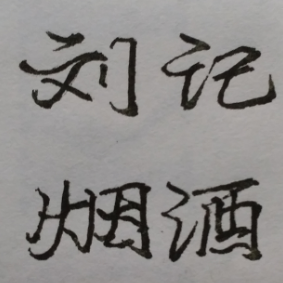 刘记
烟酒